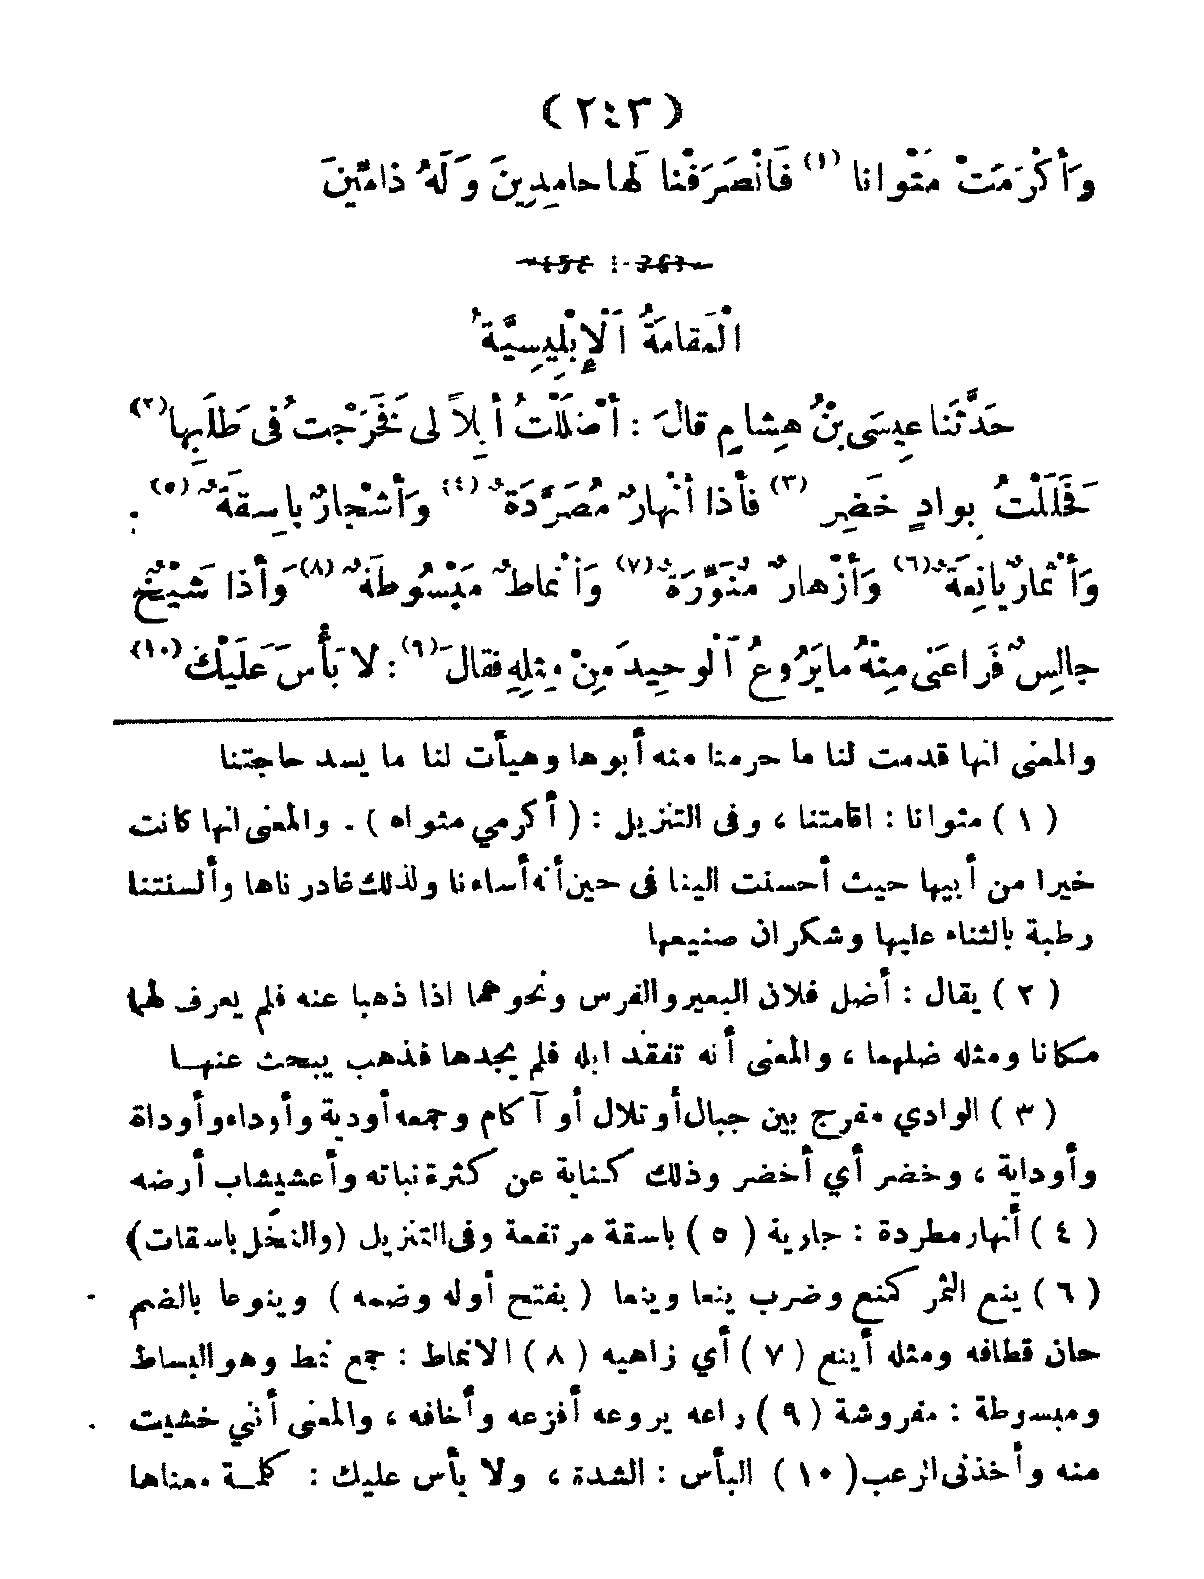 (٢٤٣)
وَأَكْرَمَتْ مَثْوانا (١) فَانْصَرَفْنا لَها حامِدِينَ وَلَهُ ذامِّينَ
الْمَقامَةُ الْإِبْلِيسِيَّةُ
حَدَّثَنا عِيسَى بْنُ هِشامٍ قالَ : أَضْلَلْتُ أبِلاً لِى فَخَرَجْتُ فِى طَلَبِها (٢)
فَحَلَلْتُ بِوادٍ خَضِرٍ (٣) فَأذا أنْهارٌ مُصَرَّدَةٌ (٤) وَأشْجارٌ باسِقَةٌ (٥)
وَأثْمارٌ يانِعَةٌ (٦) وَأزْهارٌ مُنَوِّرَةٌ (٧) وَأنْماطٌ مَبْسُوطَةٌ (٨) وَأذا شَيْخٌ
جالِسٌ فَراعَنِى مِنْهُ ما يَرُوعُ الْوحِيدَ مِنْ مِثلِهِ فقالَ (٩) : لا بَأْسَ عَلَيْكَ (١٠)
والمعنى انها قدمت لنا ما حرمنا منه أبوها وهيأت لنا ما يسد حاجتنا
(١) مثوانا : اقامتنا ، وفى التنزيل : ( أكرمي مثواه ) . والمعنى انها كانت
خيرا من أبيها حيث أحسنت الينا فى حين أنه أساءنا ولذلك غادرناها وألسنتنا
رطبة بالثناء عليها وشكران صنيعها
(٢) يقال : أضل فلان البعير والفرس ونحوهما اذا ذهبا عنه فلم يعرف لهما
مكانا ومثله ضلهما ، والمعنى أنه تفقد ابله فلم يجدها فذهب يبحث عنها
(٣) الوادي مفرج بين جبال أو تلال أو آكام وجمعه أودية وأوداء وأوداة
وأوداية ، وخضر أي أخضر وذلك كناية عن كثرة نباته وأعشيشاب أرضه
(٤) أنهار مطردة : جارية (٥) باسقة مرتفعة وفى التنزيل (والنخل باسقات)
(٦) ينع الثمر كمنع وضرب ينعا وينعا ( بفتح أوله وضمه ) وينوعا بالضم
حان قطافه ومثله أينع (٧) أي زاهيه (٨) الانماط : جمع نمط وهو البساط
ومبسوطة : مفروشة (٩) راعه يروعه أفزعه وأخافه ، والمعنى أنني خشيت
منه وأخذنى الرعب (١٠) البأس : الشدة ، ولا بأس عليك : كلمة معناها